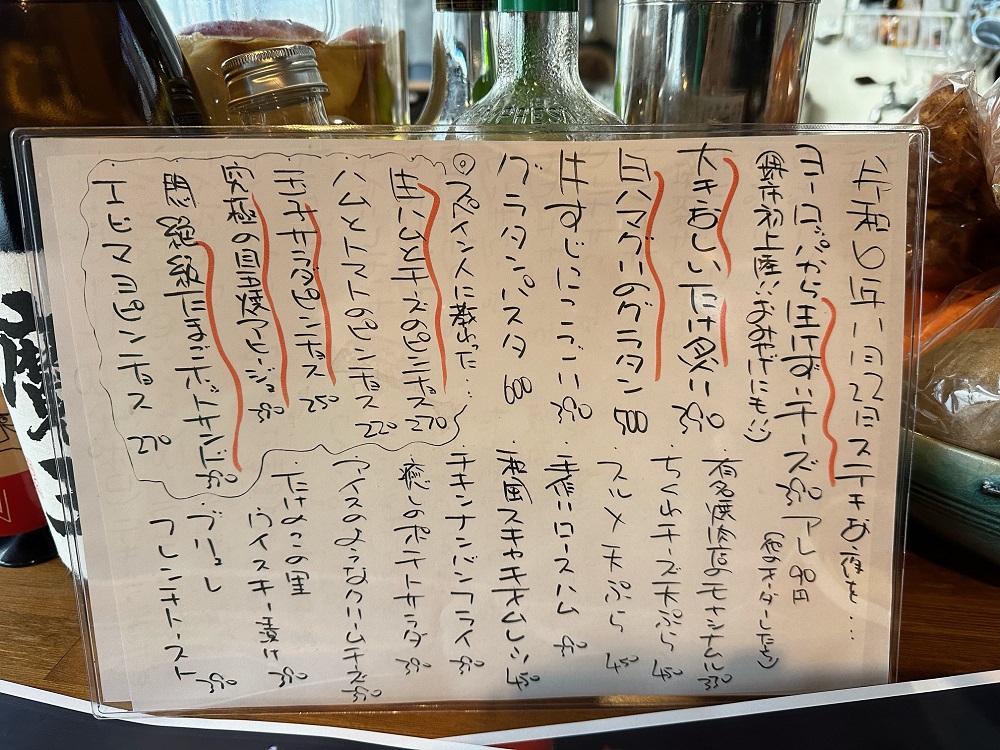 令和6年11月22日ステキな夜を...
ヨーロッパから生けずぃチーズ390 アレ90円
(堺市初上陸!!おみやげにも!!)
大きおしいたけ炙り390
有名焼肉店のモヤシナムル330
白ハマグリのグラタン500
ちくわチーズ天ぷら450
牛すじにこごり390
スルメ天ぷら450
グラタンパスタ600
手作りロースハム
◎スペイン人に教わった...
和風スキヤキオムレツ450
生ハムとチーズのピンチョス270
チキンナンバンフライ
ハムとトマトのピンチョス220
癒しのポテトサラダ
玉子サラダピンチョス250
アイスのようなクリームチーズ
究極の目玉焼アヒージョ390
たけのこの里
ウイスキー漬け
悶絶級たまごホットサンド
ブリュレ
フレンチトースト
エビマヨピンチョス270